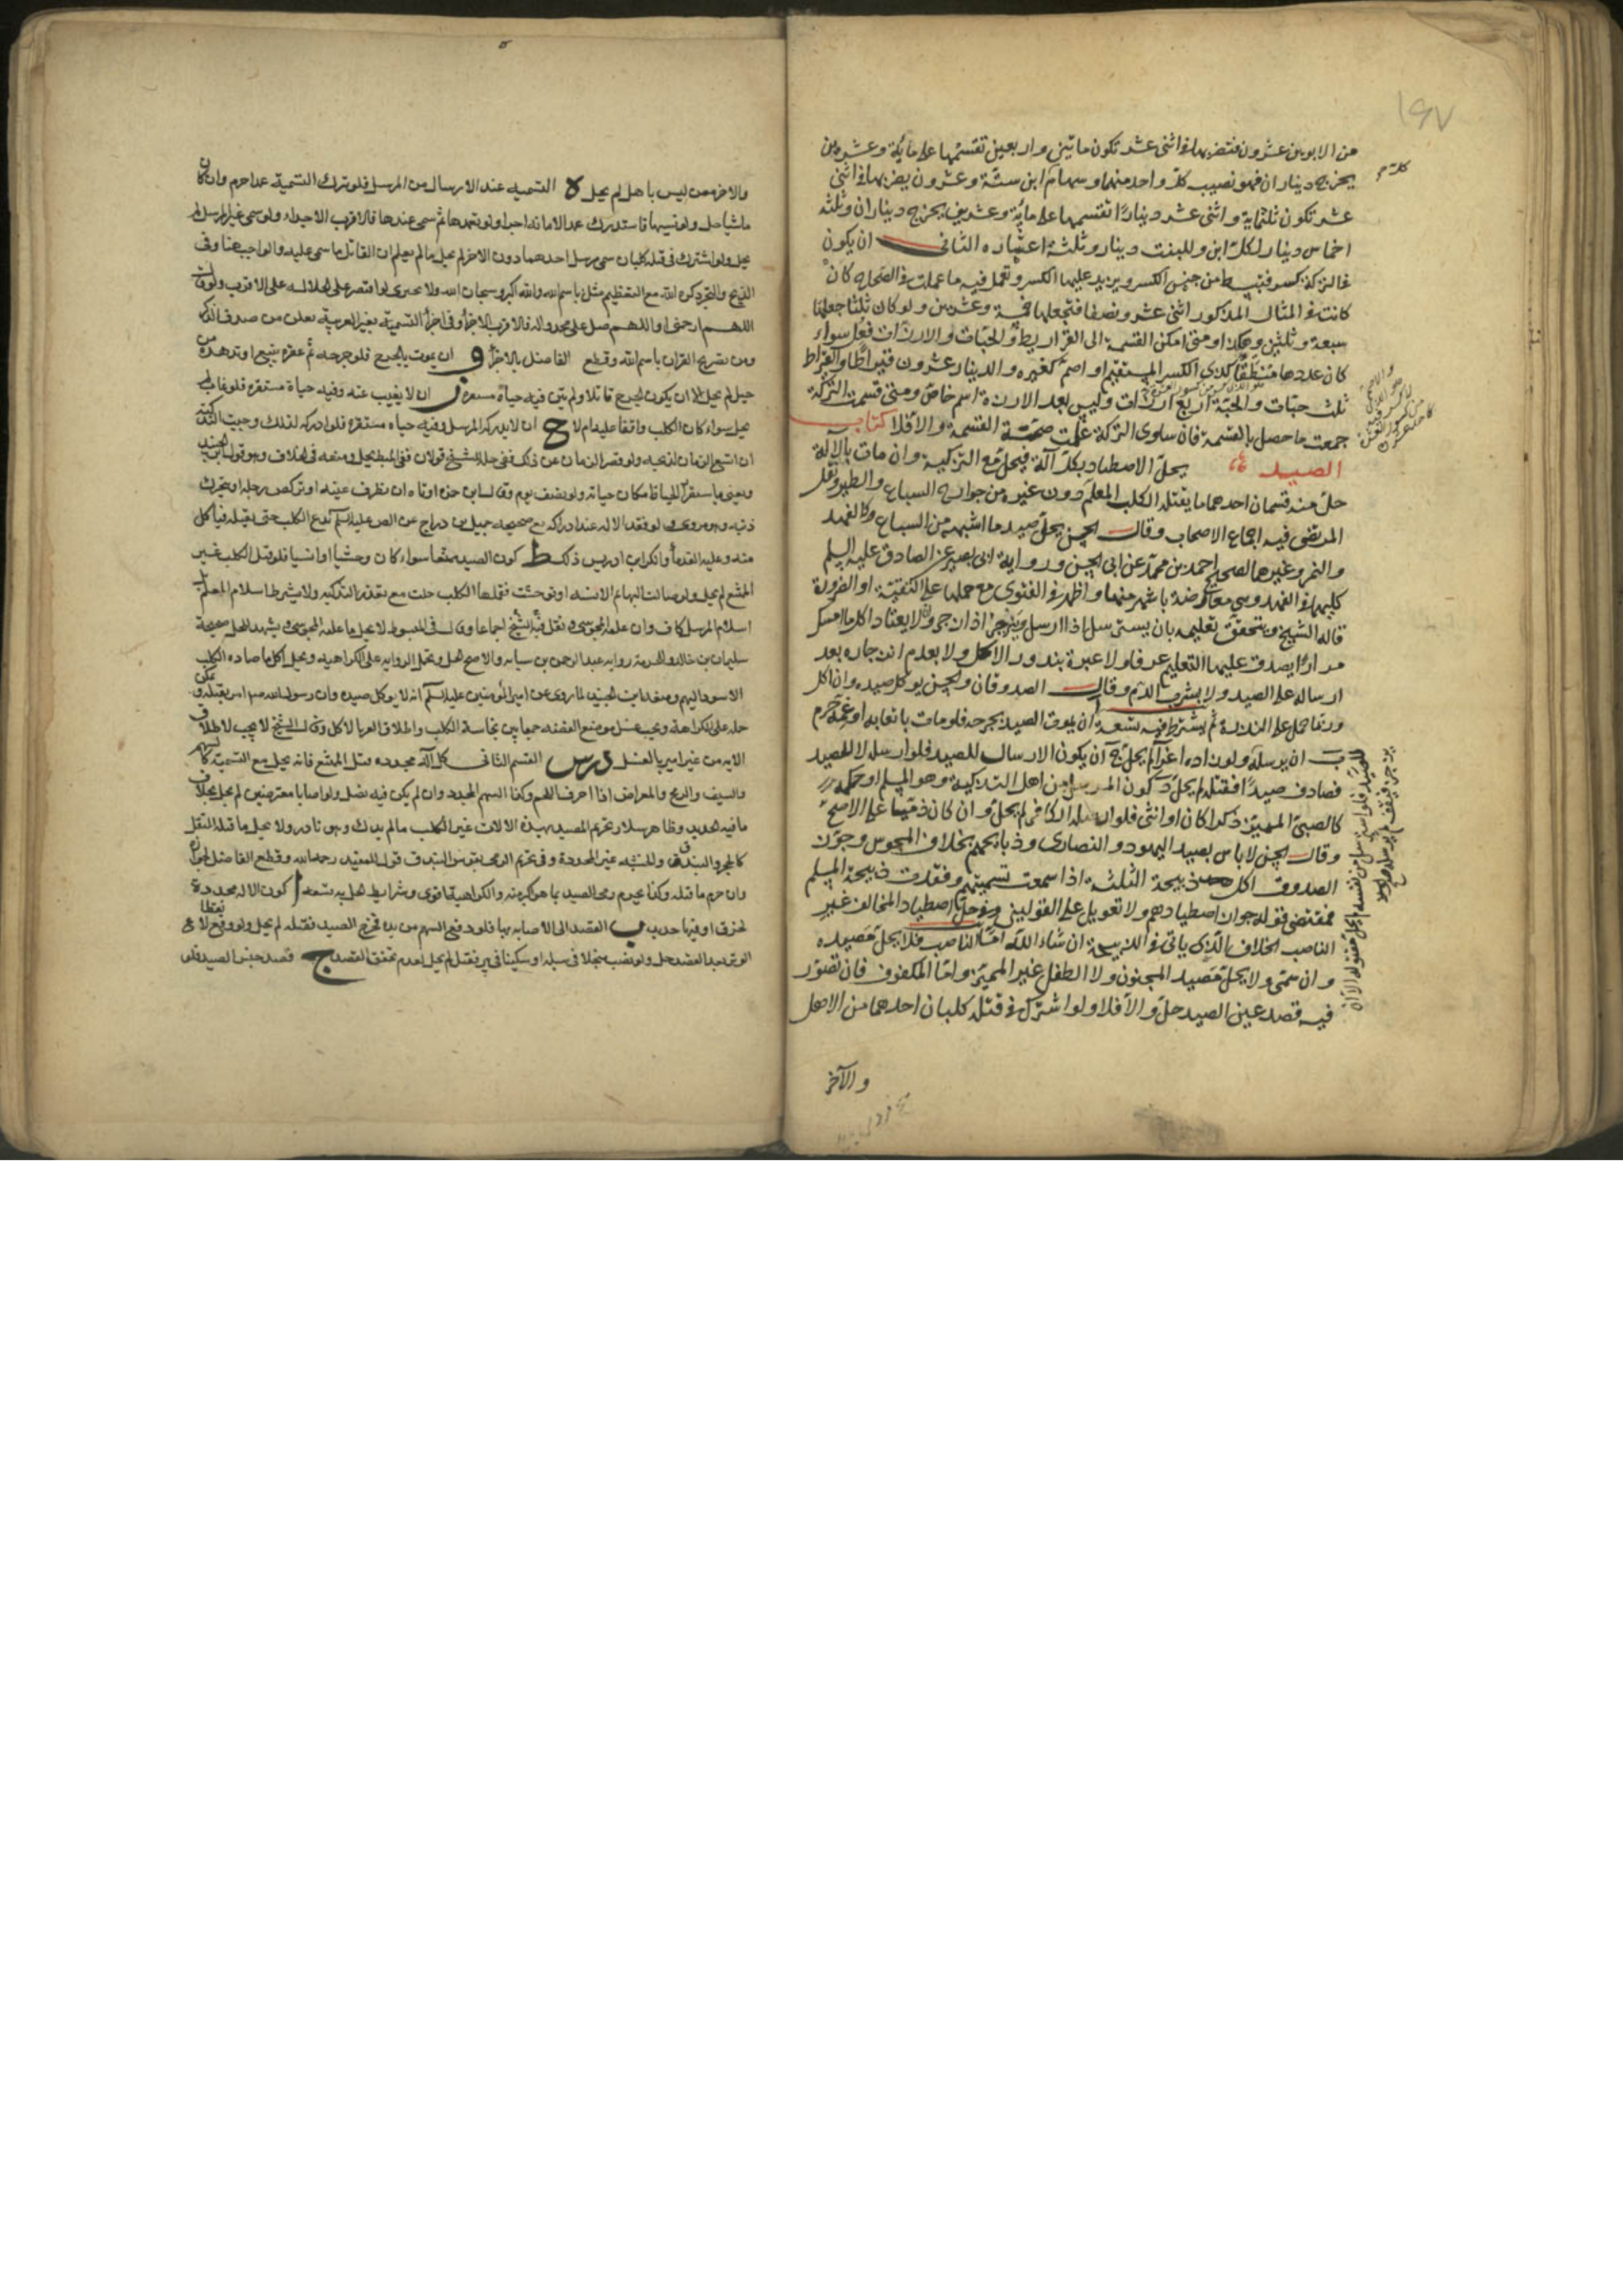 ١٩٧
من الابوين عشرون فتضربها في اثنى عشر تكون ماتين واربعين تقسمها على ماية وعشرين
يخرج ديناران فهو نصيب كل واحد منهما وسهام ابن ستة وعشرون يضربها في اثنى
عشر تكون ثلثماية واثنى عشر دينارًا تقسمها على ماية وعشرين يخرج ديناران وثلثة
اخماس دينار لكل ابن وللبنت دينار وثلثة اعشاره الثانى ان يكون
في التركة كسر فتبسط من جنس الكسر ويزيد عليها الكسر وتعمل فيه ما عملت في الصحاح كان
كانت في المثال المذكور اثنى عشر ونصفا فتجعلها خمسة وعشرين ولو كان ثلثا جعلتها
سبعة وثلثين وهكذا ومتى امكن القسمة الى القراريط والحبات والارزات فعل سواء
كان عددها منطقًا كذى الكسر المستقيم او اصم كغيره والدينار عشرون قيراطًا والقيراط
ثلث حبات والحبة اربع ارزات وليس بعد الارزة اسم خاص ومتى قسمت التركة
جمعت ما حصل بالقسمة فان ساوى التركة علمت صحة القسمة والا فلا كتاب
الصيد يحل الاصطياد بكل آلة فيحل مع التزكية وان مات بالالة
حل منه قسمان احدهما ما يقتله الكلب المعلم دون غيره من جوارح السباع والطير ونقل
المرتضى فيه اجماع الاصحاب وقال الحسن يحل صيد ما اشبهه من السباع كالفهد
والنمر وغيرهما لصحيح احمد بن محمد عن ابى الحسن ورواية ابى بصير عن الصادق عليه السلم
كليهما في الفهد وهي معارضة باشهر منها واظهر في الفتوى مع حملها على التقية او الضرورة
قاله الشيخ ويتحقق تعليمه بان يسترسل اذا ارسل وينزجر اذا زجر ولا يعتاد اكل ما امسك
مرارًا يصدق عليها التعليم عرفا ولا عبرة بندور الاكل ولا بعدم انزجاره بعد
ارساله على الصيد ولا بشرب الدم وقال الصدوقان والحسن يوكل صيده وان اكل
وربما حمل على الندرة ثم يشترط فيه تسعة ا ان يموت الصيد بجرحه فلو مات باتعابه او غمه حرم
ب ان يرسله ولو زاده اغراء لم يحل ج ان يكون الارسال للصيد فلو ارسله لا للصيد
فصادف صيدًا فقتله لم يحل د كون المرسل من اهل التذكية وهو المسلم او حكمه
كالصبي المميز ذكرا كان او انثى فلو ارسله الكافر لم يحل وان كان ذميا على الاصح
وقال الحسن لا باس بصيد اليهود والنصارى وذبائحهم بخلاف المجوس وجوز
الصدوق اكل ذبيحة الثلثة اذا سمعت تسميتهم وفقدت ذبيحة المسلم
فمقتضى قوله جواز اصطيادهم ولا تعويل على القولين وفي حل اصطياد المخالف غير
الناصب الخلاف الذي ياتى في الذبيحة ان شاء الله اما الناصب فلا يحل مصيده
وان سمى ولا يحل مصيد المجنون ولا الطفل غير المميز واما المكفوف فان تصور
فيه قصد عين الصيد حل والا فلا ولو اشترك في قتله كلبان احدهما من الاهل
والآخر
والاخر ممن ليس باهل لم يحل ه التسميه عند الارسال من المرسل فلو ترك التسمية عمدا حرم وان كان
ناسيا حل ولو نسيها فاستدرك عند الاصابة اجزا ولو تعمدها ثم سمى عندها فالاقرب الاجزاء ولو سمى غير المرسل لم
يحل ولو اشترك في قتله كلبان سمى مرسل احدهما دون الاخر لم يحل ما لم يعلم ان القاتل ما سمى عليه والواجب هنا وفى
الذبح والنحر ذكر الله مع التعظيم مثل باسم الله والله اكبر وسبحان الله ولا يجزى لو اقتصر على الجلالة على الاقرب ولو قال
اللهم ارحمنى او اللهم صل على محمد واله فالاقرب الاجزأ وفى اجزأ التسمية بغير العربية نظر من صدق الذكر
ومن تصريح القران باسم الله وقطع الفاضل بالاجزأ و ان يموت بالجرح فلو جرحه ثم عقره سبع او تردى من
جبل لم يحل الا ان يكون الجرح قاتلا ولم تبق فيه حياة مستقره ز ان لا يغيب عنه وفيه حياة مستقره فلو غاب لم
يحل سواء كان الكلب واقفا عليه ام لا ح ان لا يدركه المرسل وفيه حياه مستقره فلو ادركه لذلك وجبت التذكية
ان اتسع الزمان لذبحه ولو قصر الزمان عن ذلك ففى حله للشيخ قولان ففى المبسوط يحل ومنعه فى الخلاف وهو قول ابن الجنيد
ويعنى باستقرار الحياة امكان حياته ولو نصف يوم وقال ابن حمزه ادناه ان تطرف عينه او تركض رجله او يتحرك
ذنبه وهو مروى ولو فقد الالة عند ادراكه ففى صحيحه جميل بن دراج عن الصادق عليه السلم يدع الكلب حتى يقتله فياكل
منه وعليه القدماء وانكر ابن ادريس ذلك ط كون الصيد ممتنعا سواء كان وحشيا او انسيا فلو قتل الكلب غير
الممتنع لم يحل ولو صالت البهائم الانسيه او توحشت فقتلها الكلب حلت مع تعذر التذكيه ولا يشترط اسلام المعلم بل
اسلام المرسل كاف وان علمه المجوسى ونقل فيه الشيخ اجماعا وقال فى المبسوط لا يحل ما علمه المجوسى ويشهد للحل صحيحة
سليمان بن خالد وللحرمة روايه عبد الرحمن بن سيابه والاصح الحل وتحمل الروايه على الكراهيه ويحل اكل ما صاده الكلب
الاسود البهيم ومنعه ابن الجنيد لما روى عن امير المؤمنين عليه السلم انه لا يوكل صيده وان رسول الله امر بقتله ويمكن
حمله على الكراهة ويجب غسل موضع العضه جمعا بين نجاسة الكلب واطلاق الامر بالاكل وقال الشيخ لا يجب لاطلاق
الايه من غير امر بالغسل درس القسم الثانى كل آلة محدده تقتل الممتنع فانه يحل مع التسمية كالسهم
والسيف والرمح والمعراض اذا خرق اللحم وكذا السهم المحدد وان لم يكن فيه نصل ولو اصابا معترضين لم يحل بخلاف
ما فيه حديد وظاهر سلار تحريم الصيد بهذه الالات غير الكلب ما لم يدرك وهو نادر ولا يحل ما قتله الثقل
كالحجر والبندق والخشبه غير المحددة وفى تحريم الرمى بقوس البندق قول للمفيد رحمه الله وقطع الفاضل بجوازه
وان حرم ما قتله وكذا يحرم رمى الصيد بما هو اكبر منه والكراهية اقوى وشرايط حل هذا تسعه ا كون الالة محدده
تخزق او فيها حديد ب القصد الى الاصابة بها فلو دفع السهم من يده فخرج الصيد فقتله لم يحل ولو وقع لانقطاع
الوتر بعد القصد حل ولو نصب منجلا فى شبكه او سكينا فى بير فقتل لم يحل لعدم تحقق القصد ج قصد جنس الصيد فلو